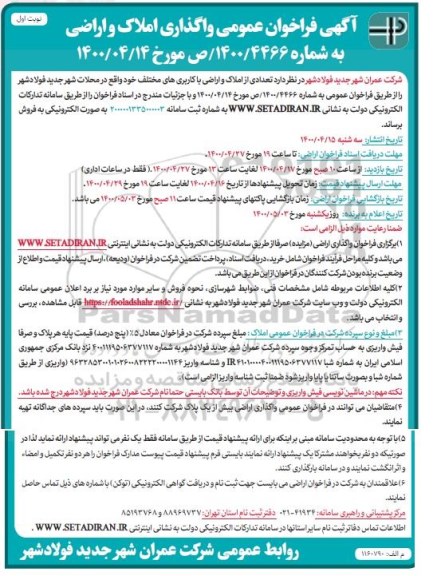 نوبت اول
آگهی فراخوان عمومی واگذاری املاک و اراضی
به شماره ۱۴۰۰/۴۴۶۶/ص مورخ ۱۴۰۰/۰۴/۱۴
شرکت عمران شهر جدید فولادشهر در نظر دارد تعدادی از املاک و اراضی با کاربری های مختلف خود واقع در محلات شهر جدید فولادشهر
را از طریق فراخوان عمومی به شماره ۱۴۰۰/۴۴۶۶/ص مورخ ۱۴۰۰/۰۴/۱۴ و با جزئیات مندرج در اسناد فراخوان را از طریق سامانه تدارکات
الکترونیکی دولت به نشانی WWW.SETADIRAN.IR به شماره ثبت سامانه به صورت الکترونیکی به فروش
برساند.
تاریخ انتشار: سه شنبه ۱۴۰۰/۰۴/۱۵
مهلت دریافت اسناد فراخوان اراضی: تا ساعت ۱۹ مورخ ۱۴۰۰/۰۴/۲۷.
تاریخ بازدید: از ساعت ۱۰ صبح مورخ ۱۴۰۰/۰۴/۱۷ لغایت ساعت ۱۳ مورخ ۱۴۰۰/۰۴/۲۷. (فقط در ساعات اداری)
مهلت ارسال پیشنهاد قیمت: زمان تحویل پیشنهادها از تاریخ ۱۴۰۰/۰۴/۱۶ لغایت ساعت ۱۹ مورخ ۱۴۰۰/۰۴/۲۹.
تاریخ بازگشایی فراخوان اراضی: زمان بازگشایی پاکتهای پیشنهاد قیمت ساعت ۱۱ صبح مورخ ۱۴۰۰/۰۵/۰۳ می باشد.
تاریخ اعلام به برنده: روز یکشنبه مورخ ۱۴۰۰/۰۵/۰۳
ضمنا رعایت موارد ذیل الزامی است:
۱)برگزاری فراخوان واگذاری اراضی (مزایده) صرفا از طریق سامانه تدارکات الکترونیکی دولت به نشانی اینترنتی WWW.SETADIRAN.IR
می باشد و کلیه مراحل فرآیند فراخوان شامل خرید، دریافت اسناد، پرداخت تضمین شرکت در فراخوان (ودیعه)، ارسال پیشنهاد قیمت و اطلاع از
وضعیت برنده بودن شرکت کنندگان در فراخوان از این طریق می باشد.
۲)کلیه اطلاعات مربوطه شامل مشخصات فنی، ضوابط شهرسازی، نحوه فروش و سایر موارد مورد نیاز بر برد اعلان عمومی سامانه
الکترونیکی دولت و وب سایت شرکت عمران شهر جدید فولادشهر به نشانی https://fooladshahr.ntdc.ir/ قابل مشاهده، بررسی
و انتخاب می باشد.
۳)مبلغ و نوع سپرده شرکت در فراخوان عمومی املاک: مبلغ سپرده شرکت در فراخوان معادل ۵٪ (پنج درصد) قیمت پایه هر پلاک و صرفا
فیش واریزی به حساب تمرکز وجوه سپرده شرکت عمران شهر جدید فولادشهر به شماره نزد بانک مرکزی جمهوری
اسلامی ایران به شماره شبا و شناسه واریز (واریزی از طریق
شماره شبا و بصورت ساتنا یا پایا واریز شود ضمنا ثبت شناسه واریز الزامی است).
نکته مهم: در ماشین نویسی فیش واریزی و توضیحات آن توسط بانک بایستی حتما نام شرکت عمران شهر جدید فولادشهر درج شده باشد.
۴)متقاضیان می توانند در فراخوان عمومی واگذاری اراضی بیش از یک پلاک شرکت کنند، در این صورت باید سپرده های جداگانه تهیه
نمایند.
۵)با توجه به محدودیت سامانه مبنی بر اینکه برای ارائه پیشنهاد قیمت از طریق سامانه فقط یک نفر می تواند پیشنهاد ارائه نماید لذا در
صورتیکه دو نفر بخواهند مشترکا یک پیشنهاد ارائه نمایند بایستی فرم پیشنهاد قیمت پیوست مدارک فراخوان را هر دو نفر تکمیل و امضاء
و اثر انگشت نمایند و در سامانه بارگذاری کنند.
۶)علاقمندان به شرکت در فراخوان اراضی می بایست جهت ثبت نام و دریافت گواهی الکترونیکی (توکن) با شماره های ذیل تماس حاصل
نمایند.
مرکز پشتیبانی و راهبری سامانه: ۴۱۹۳۴-۰۲۱ دفتر ثبت نام استان تهران: ۸۸۹۶۹۷۳۷ و ۸۵۱۹۳۷۶۸
اطلاعات تماس دفاتر ثبت نام سایر استانها در سامانه تدارکات الکترونیکی دولت به نشانی اینترنتی WWW.SETADIRAN.IR.
م الف: ۱۱۶۰۷۹۰
روابط عمومی شرکت عمران شهر جدید فولادشهر